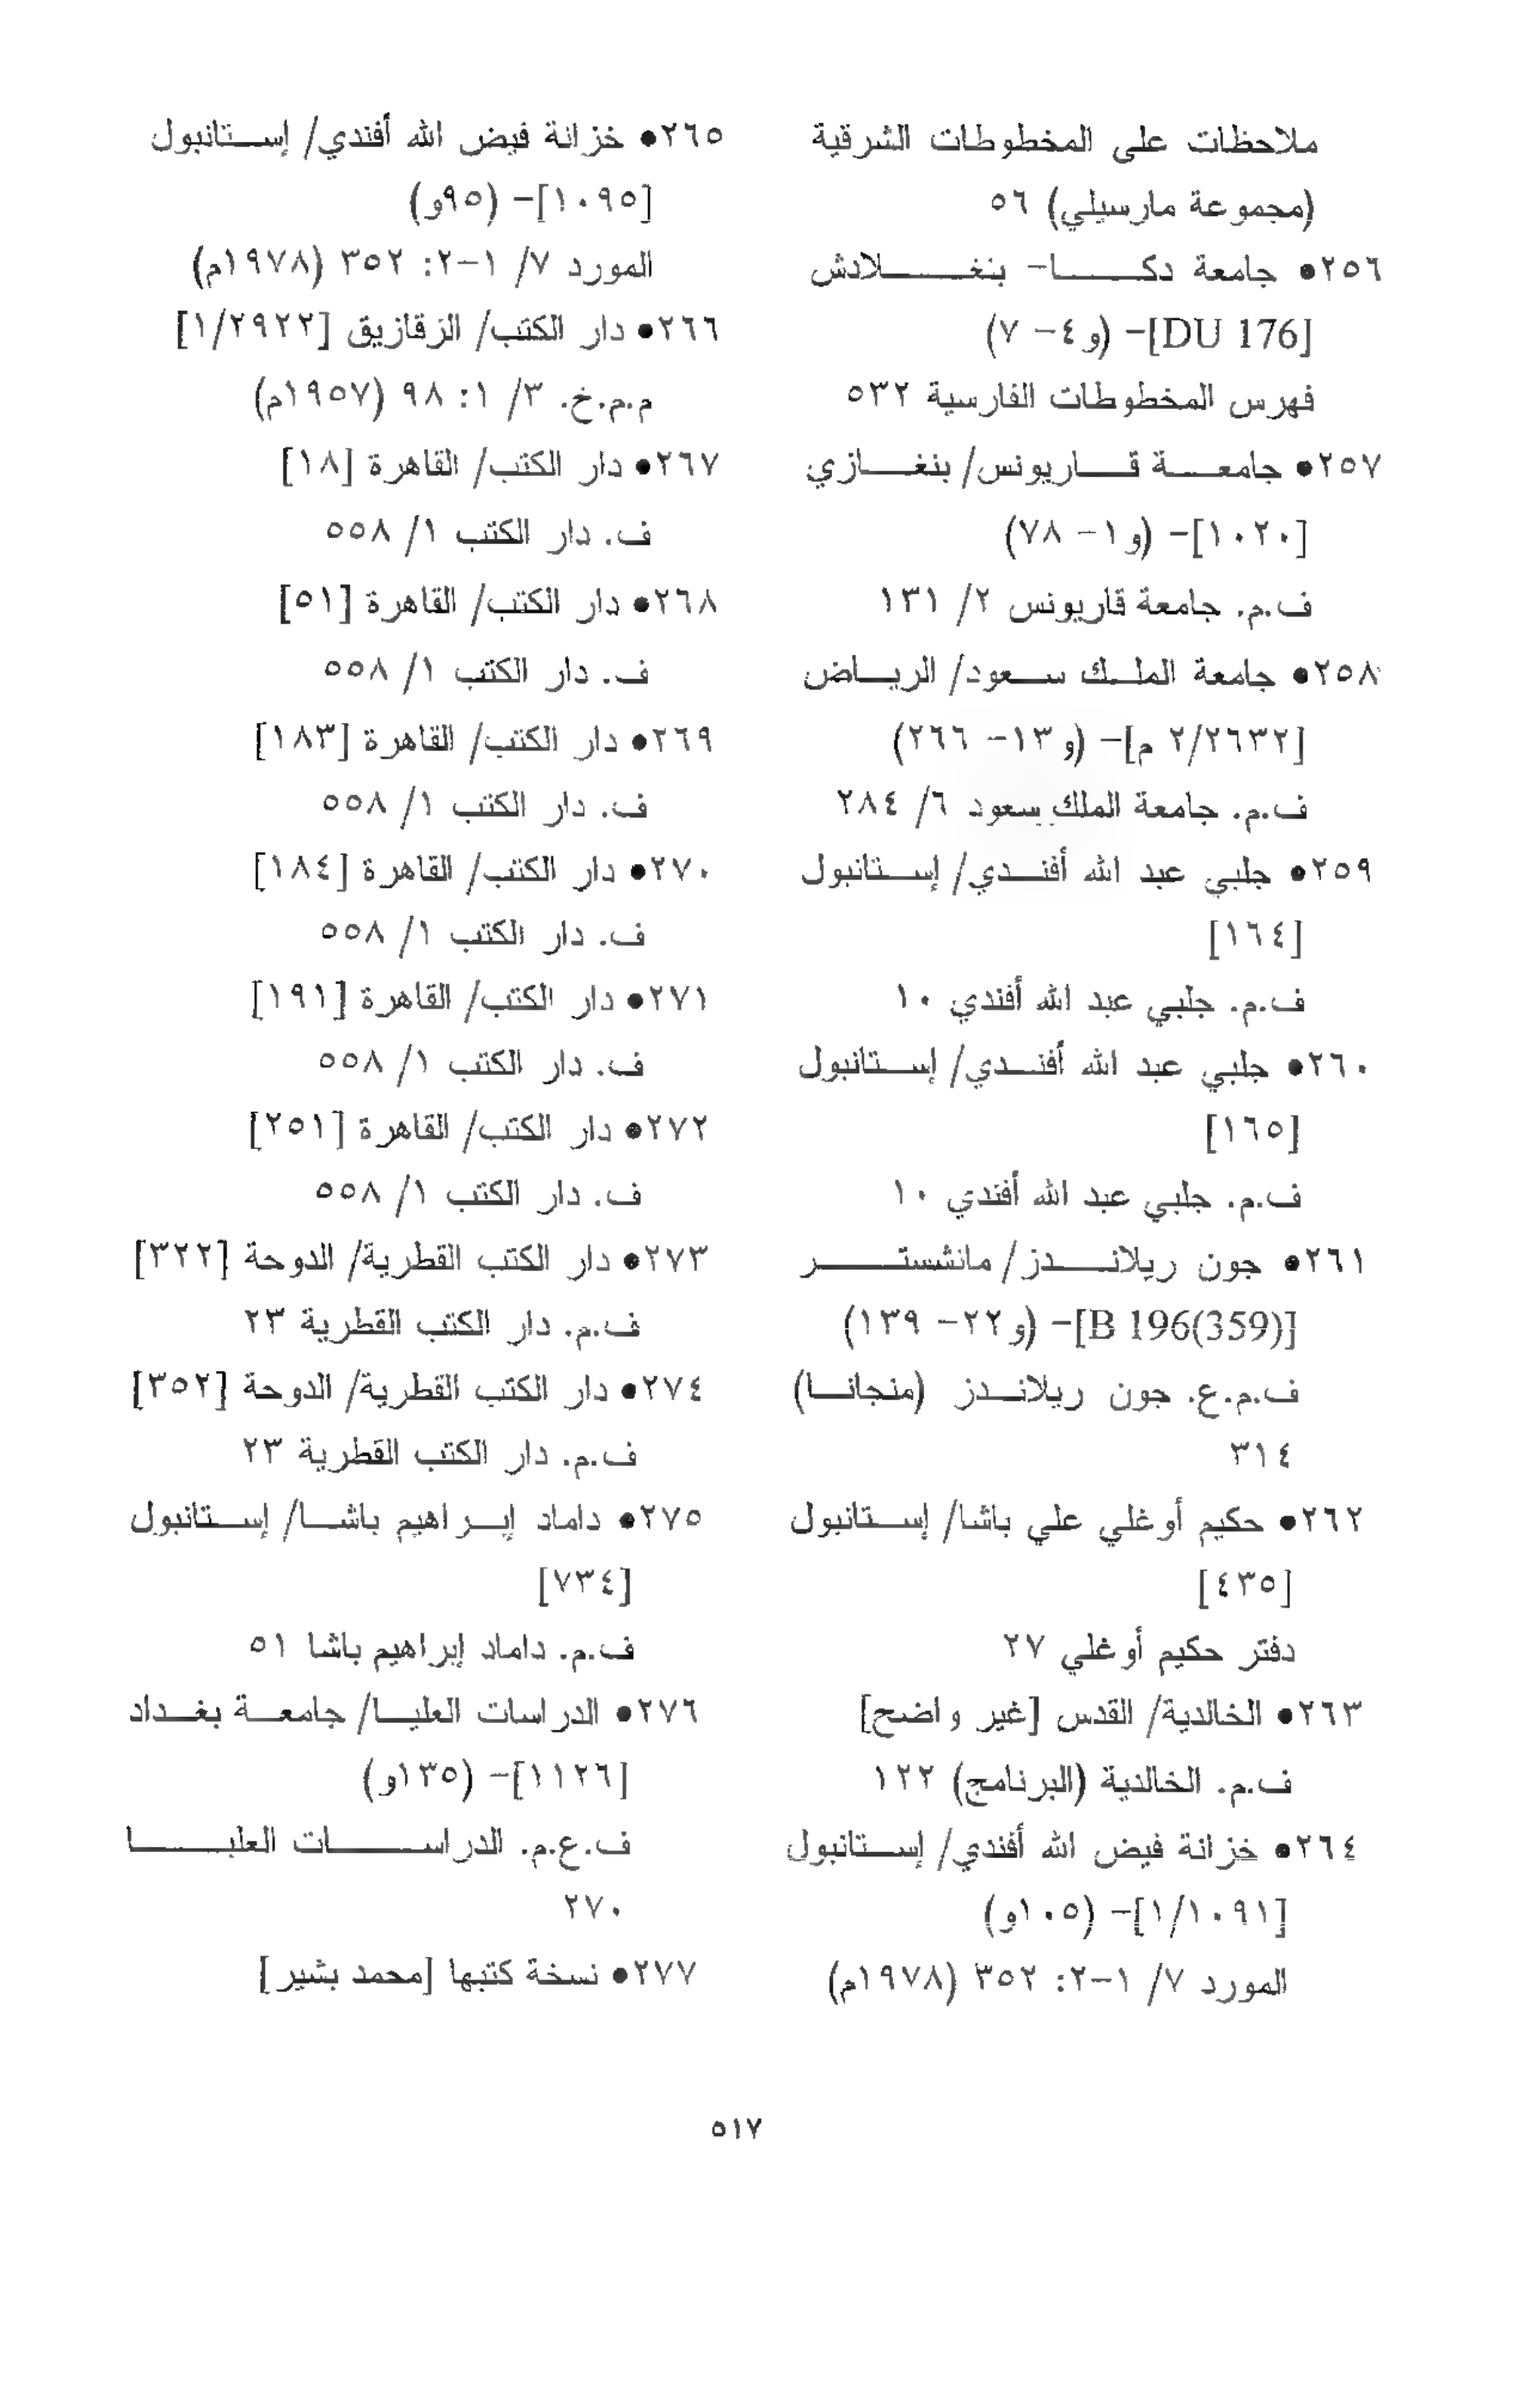 ملاحظات على المخطوطات الشرقية
(مجموعة مارسيلي) ٥٦
٢٥٦● جامعة دكا- بنغلادش
[DU 176]- (و٤- ٧)
فهرس المخطوطات الفارسية ٥٣٢
٢٥٧● جامعة قاريونس/ بنغازي
[١٠٢٠]- (و١- ٧٨)
ف.م. جامعة قاريونس ٢/ ١٣١
٢٥٨● جامعة الملك سعود/ الرياض
[٢/٢٦٣٢ م]- (و١٣- ٢٦٦)
ف.م. جامعة الملك سعود ٦/ ٢٨٤
٢٥٩● جلبي عبد الله أفندي/ إستانبول
[١٦٤]
ف.م. جلبي عبد الله أفندي ١٠
٢٦٠● جلبي عبد الله أفندي/ إستانبول
[١٦٥]
ف.م. جلبي عبد الله أفندي ١٠
٢٦١● جون ريلاندز/ مانشستر
[B 196(359)]- (و٢٢- ١٣٩)
ف.م.ع. جون ريلاندز (منجانا)
٣١٤
٢٦٢● حكيم أوغلي علي باشا/ إستانبول
[٤٣٥]
دفتر حكيم أوغلي ٢٧
٢٦٣● الخالدية/ القدس [غير واضح]
ف.م. الخالدية (البرنامج) ١٢٢
٢٦٤● خزانة فيض الله أفندي/ إستانبول
[١/١٠٩١]- (١٠٥و)
المورد ٧/ ١-٢: ٣٥٢ (١٩٧٨م)
٢٦٥● خزانة فيض الله أفندي/ إستانبول
[١٠٩٥]- (٩٥و)
المورد ٧/ ١-٢: ٣٥٢ (١٩٧٨م)
٢٦٦● دار الكتب/ الزقازيق [١/٢٩٢٢]
م.م.خ. ٣/ ١: ٩٨ (١٩٥٧م)
٢٦٧● دار الكتب/ القاهرة [١٨]
ف. دار الكتب ١/ ٥٥٨
٢٦٨● دار الكتب/ القاهرة [٥١]
ف. دار الكتب ١/ ٥٥٨
٢٦٩● دار الكتب/ القاهرة [١٨٣]
ف. دار الكتب ١/ ٥٥٨
٢٧٠● دار الكتب/ القاهرة [١٨٤]
ف. دار الكتب ١/ ٥٥٨
٢٧١● دار الكتب/ القاهرة [١٩١]
ف. دار الكتب ١/ ٥٥٨
٢٧٢● دار الكتب/ القاهرة [٢٥١]
ف. دار الكتب ١/ ٥٥٨
٢٧٣● دار الكتب القطرية/ الدوحة [٣٢٢]
ف.م. دار الكتب القطرية ٢٣
٢٧٤● دار الكتب القطرية/ الدوحة [٣٥٢]
ف.م. دار الكتب القطرية ٢٣
٢٧٥● داماد إبراهيم باشا/ إستانبول
[٧٣٤]
ف.م. داماد إبراهيم باشا ٥١
٢٧٦● الدراسات العليا/ جامعة بغداد
[١١٢٦]- (١٣٥و)
ف.ع.م. الدراسات العليا
٢٧٠
٢٧٧● نسخة كتبها [محمد بشير]
٥١٧